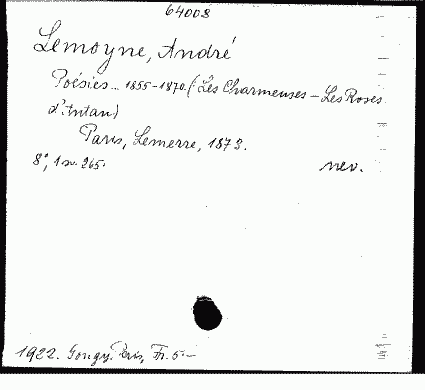 64008
Lemoyne, André
Poésies... 1855-1870. (Les Charmeuses – Les Roses
d'Antan)
Paris, Lemerre, 1873.
8°, 1 w. 265.
nev.
1922. Gongy. Paris, Fr. 5.–